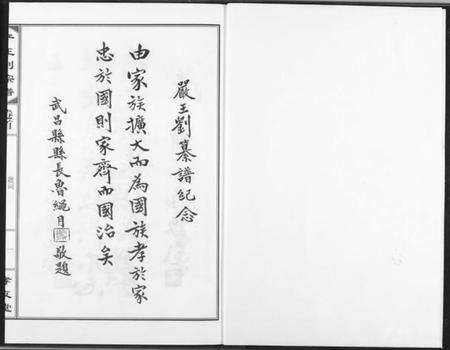 嚴王劉纂譜紀念
由家族擴大而為國族孝於家
忠於國則家齊而國治矣
武昌縣縣長魯繩月敬題